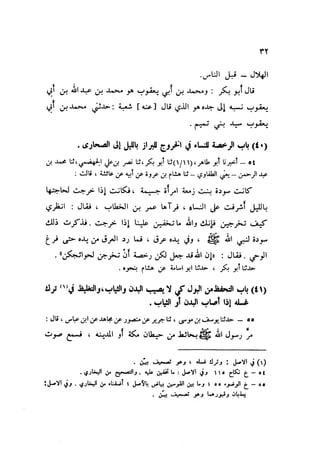 ٣٢
الهلال – قبل الناس.
قال أبو بكر : ومحمد بن أبي يعقوب هو محمد بن عبد الله بن أبي
يعقوب نسبه إلى جده هو الذي قال [عنه] شعبة : حدثني محمد بن أبي
يعقوب سيد بني تميم .
(٤٠) باب الرخصة للنساء في الخروج للبراز بالليل إلى الصحارى .
٥٤ – أخبرنا أبو طاهر ، (١/١١)ثنا أبو بكر ، ثنا نصر بن علي الجهضمي، ثنا محمد بن
عبد الرحمن – يعني الطفاوي – ثنا هشام بن عروة عن أبيه عن عائشة ، قالت :
كانت سودة بنت زمعة امرأة جسيمة ، فكانت إذا تخرج لحاجتها
بالليل أشرفت على النساء ، فرآها عمر بن الخطاب ، فقال : انظري
كيف تخرجين فإنك والله ما تخفين علينا إذا تخرج . فذكرت ذلك
سودة لنبي الله ﷺ ، وفي يده عرق ، فما رد العرق من يده حتى فرغ
الوحي . فقال : «إن الله قد جعل لكن رخصة أن تخرجن لحوائجكن».
ثنا أبو بكر ، حدثنا أبو اسامة عن هشام بنحوه .
(٤١) باب التحفظ من البول كي لا يصيب البدن والثياب، والتغليظ في(١) ترك
غسله إذا أصاب البدن أو الثياب .
٥٥ – حدثنا يوسف بن موسى ، ثنا جرير عن منصور عن مجاهد عن ابن عباس ، قال :
مرّ رسول الله ﷺ بحائط من حيطان مكة أو المدينة ، فسمع صوت
(١) في الاصل : وترك غسله ، وهو تصحيف بيّن .
٥٤ – خ نكاح ١١٥ وفي الاصل : ما تخفين عليه ، والتصحيح من البخاري .
٥٥ – خ الوضوء ٥٥ وما بين القوسين بياض بالأصل ، أضفناه من البخاري . وفي الاصل:
يعذبان وقبورهما وهو تصحيف بيّن .